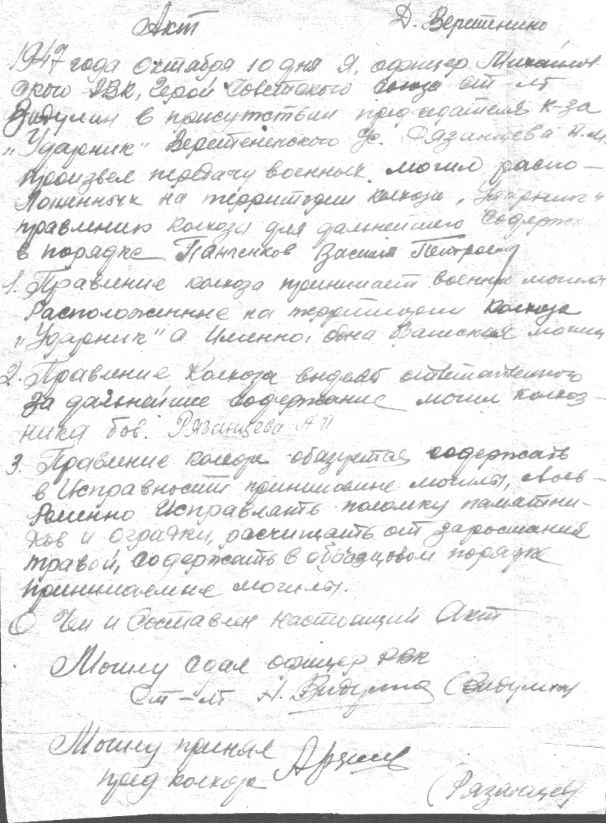 Акт Д. Веретенино
1947 года октября 10 дня Я, офицер Михайлов
ского РВК, Герой Советского Союза ст лт
Видулин в присутствии председателя к-за
"Ударник" Веретененского Рязанцева А.М.
произвел передачу военных могил распо-
ложенных на территории колхоза "Ударник"
правлению колхоза для дальнейшего содержа
в порядке Панченков Василий Петрович
1. Правление колхоза принимает военные могилы
расположенные на территории колхоза
"Ударник" а именно: одна могила
2. Правление колхоза выделяет ответственного
за дальнейшее содержание могил колхоз-
ника бов. Рязанцева АП
3. Правление колхоза обязуется содержать
в исправности принимаемые могилы, своев-
ременно исправлять поломку памятни-
ков и оградки, расчищать от заростания
травой, содержать в образцовом порядке
принимаемые могилы.
О чем и составлен настоящий Акт
Могилу сдал офицер РВК
Ст-лт Н. Видулин (Видулин)
Могилу принял
пред колхоза
(Рязанцев)